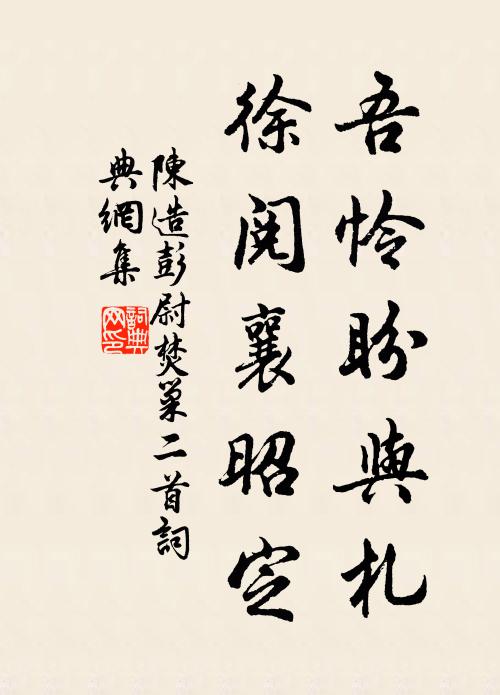 吾怜盼與札
徐閱襄昭定
陳造彭尉焚巢二首詞
典網集
詞典网印